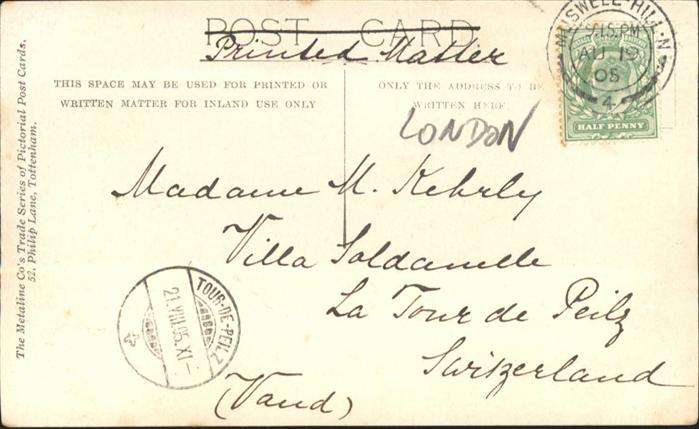 POST CARD
Printed Matter
THIS SPACE MAY BE USED FOR PRINTED OR
WRITTEN MATTER FOR INLAND USE ONLY
ONLY THE ADDRESS TO BE
WRITTEN HERE.
MUSWELL-HILL-N
9.15.PM
AU 19
05
4
HALF PENNY
LONDON
Madame M. Kehrly
Villa Soldanelle
La Tour de Peilz
Switzerland
(Vaud)
TOUR-DE-PEILZ
21.VIII.05.XI-
The Metaline Co's Trade Series of Pictorial Post Cards.
52, Philip Lane, Tottenham.